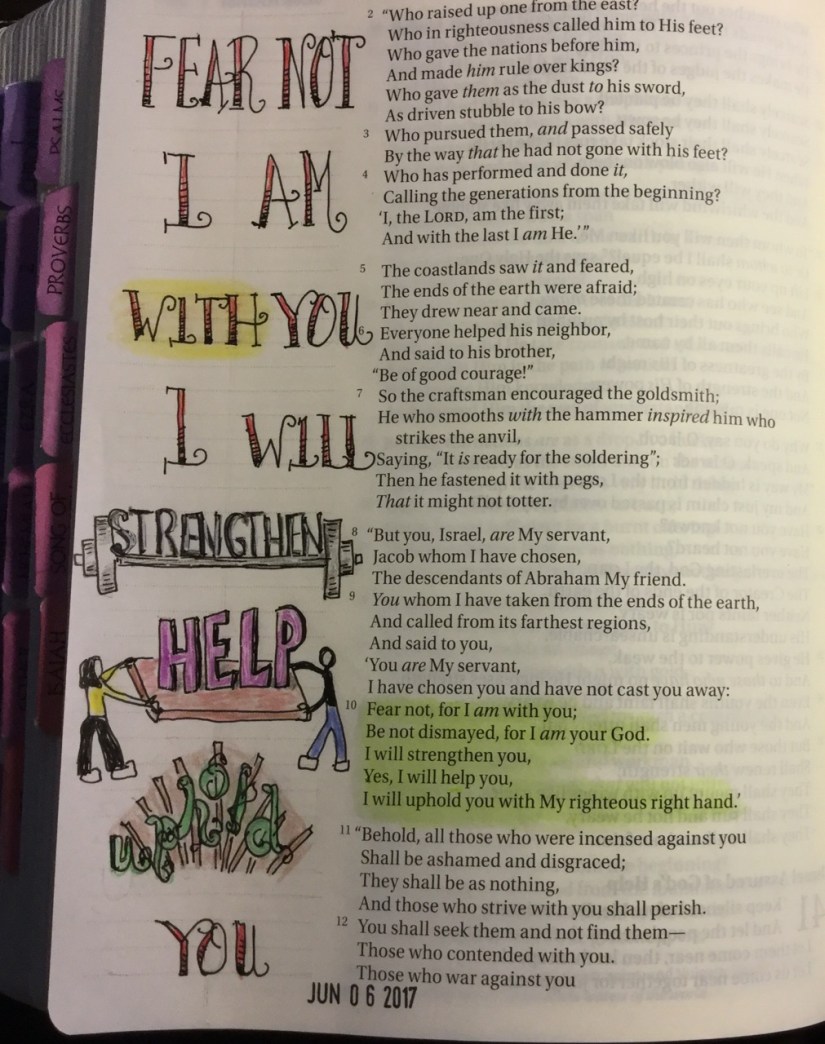 FEAR NOT
I AM
WITH YOU
I WILL
STRENGTHEN
HELP
uphold
YOU
2 "Who raised up one from the east?
Who in righteousness called him to His feet?
Who gave the nations before him,
And made him rule over kings?
Who gave them as the dust to his sword,
As driven stubble to his bow?
3 Who pursued them, and passed safely
By the way that he had not gone with his feet?
4 Who has performed and done it,
Calling the generations from the beginning?
'I, the LORD, am the first;
And with the last I am He.'"
5 The coastlands saw it and feared,
The ends of the earth were afraid;
They drew near and came.
6 Everyone helped his neighbor,
And said to his brother,
"Be of good courage!"
7 So the craftsman encouraged the goldsmith;
He who smooths with the hammer inspired him who
strikes the anvil,
Saying, "It is ready for the soldering";
Then he fastened it with pegs,
That it might not totter.
8 "But you, Israel, are My servant,
Jacob whom I have chosen,
The descendants of Abraham My friend.
9 You whom I have taken from the ends of the earth,
And called from its farthest regions,
And said to you,
'You are My servant,
I have chosen you and have not cast you away:
10 Fear not, for I am with you;
Be not dismayed, for I am your God.
I will strengthen you,
Yes, I will help you,
I will uphold you with My righteous right hand.'
11 "Behold, all those who were incensed against you
Shall be ashamed and disgraced;
They shall be as nothing,
And those who strive with you shall perish.
12 You shall seek them and not find them—
Those who contended with you.
Those who war against you
JUN 06 2017
PSALMS
PROVERBS
ECCLESIASTES
SONG OF
ISAIAH